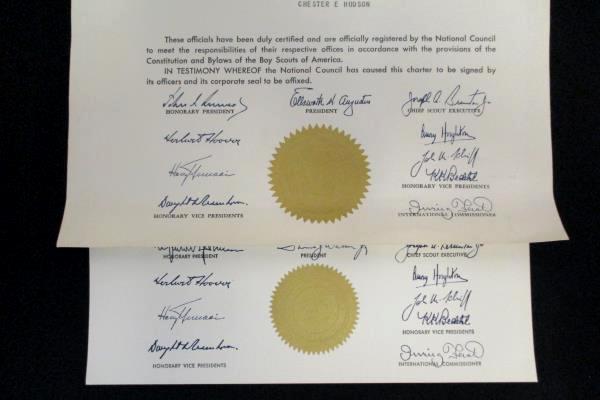 CHESTER E HUDSON
These officials have been duly certified and are officially registered by the National Council
to meet the responsibilities of their respective offices in accordance with the provisions of the
Constitution and Bylaws of the Boy Scouts of America.
IN TESTIMONY WHEREOF the National Council has caused this charter to be signed
by its officers and its corporate seal to be affixed.
Ellsworth H Augustus
HONORARY PRESIDENT PRESIDENT CHIEF SCOUT EXECUTIVE
Herbert Hoover Amory Houghton
Harry Truman John M. Schiff
K K Bechtel
HONORARY VICE PRESIDENTS
Dwight D Eisenhower
HONORARY VICE PRESIDENTS INTERNATIONAL COMMISSIONER
HONORARY PRESIDENT PRESIDENT CHIEF SCOUT EXECUTIVE
Herbert Hoover Amory Houghton
Harry Truman John M. Schiff
K K Bechtel
HONORARY VICE PRESIDENTS
Dwight D Eisenhower
HONORARY VICE PRESIDENTS INTERNATIONAL COMMISSIONER